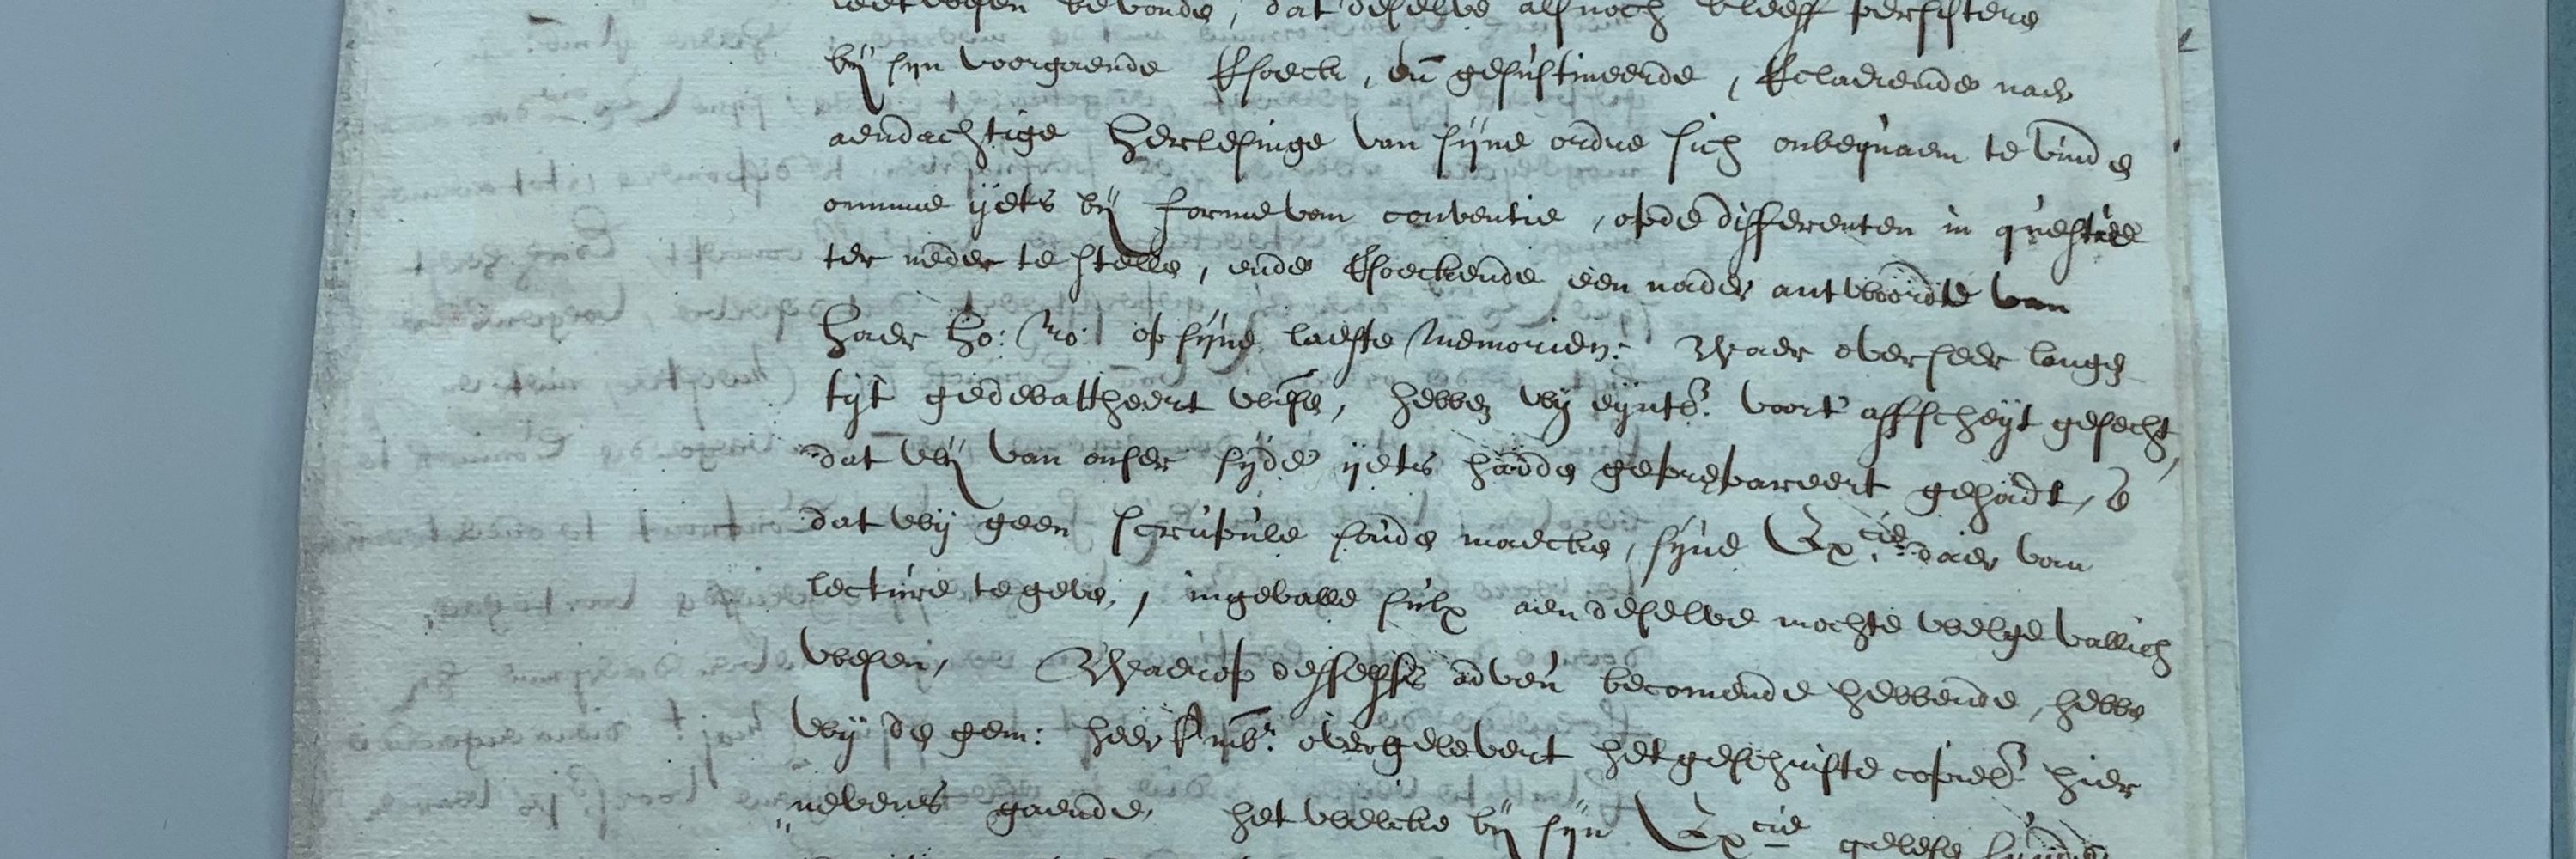 leetwesen bevonden, dat deselve alsnoch bleeff persisteren
bij sijn voorgaende versoeck, en̄ gesustineerde, verclaerende naer
aendachtige herlesinge van sijne ordre sich onbequaem te vinden
omme ijets bij forme van conventie, op de differenten in questie
ter neder te stellen, ende versoeckende een nader antwoordt van
haer Ho: Mo: op sijne laeste memorien: Waer over seer lange
tijt gedebattheert wesende, hebben wij eijnt. voort affscheijt gesecht,
dat wij van onser sijde ijets hadden geprepareert gehadt, en
dat wij geen scrupule souden maecken, sijne Ex.cie daer van
lecture te geven, ingevalle sulx aen deselve mochte welgevallich
wesen, Waerop desselfs adveu becomende hebbende, hebben
wij den gem: heer Amb.r overgelevert het geschrifte copielt. hier
nevens gaende, het welcke bij sijn Ex.cie gelesen sijnde